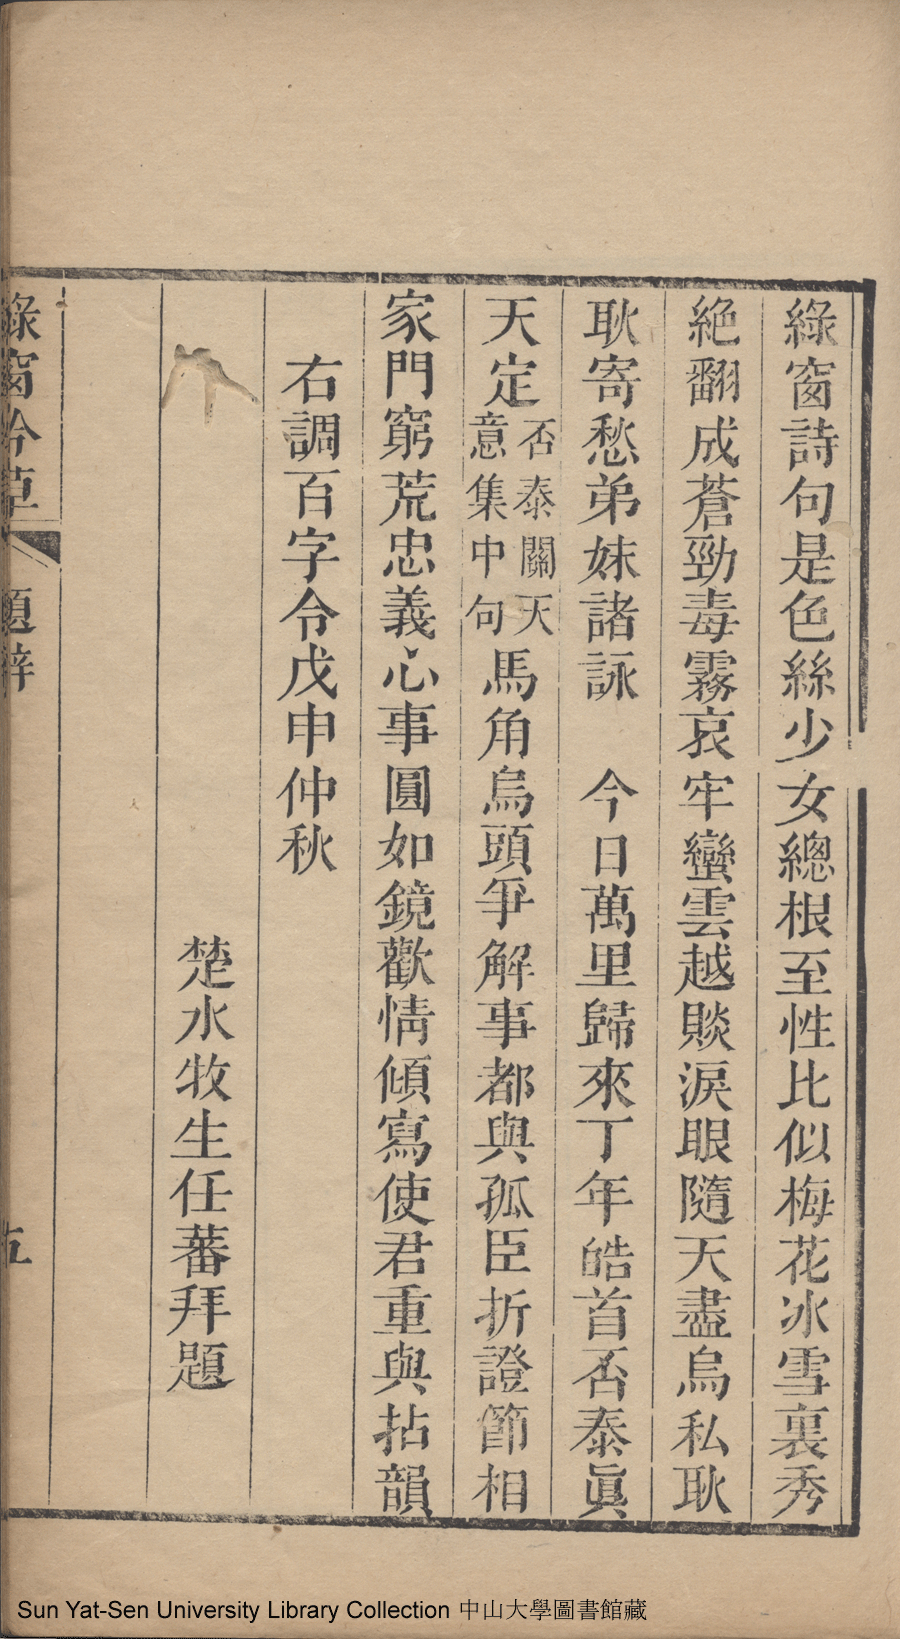 綠窗詩句是色絲少女總根至性比似梅花冰雪裏秀
絕翻成蒼勁毒霧哀牢蠻雲越賧淚眼隨天盡烏私耿
耿寄愁弟妹諸詠　今日萬里歸來丁年皓首否泰眞
天定否泰關天意集中句馬角烏頭爭解事都與孤臣折證節相
家門窮荒忠義心事圓如鏡歡情傾寫使君重與拈韻
右調百字令戊申仲秋
楚水牧生任蕃拜題
綠窗吟草　題辭　五
Sun Yat-Sen University Library Collection 中山大學圖書館藏